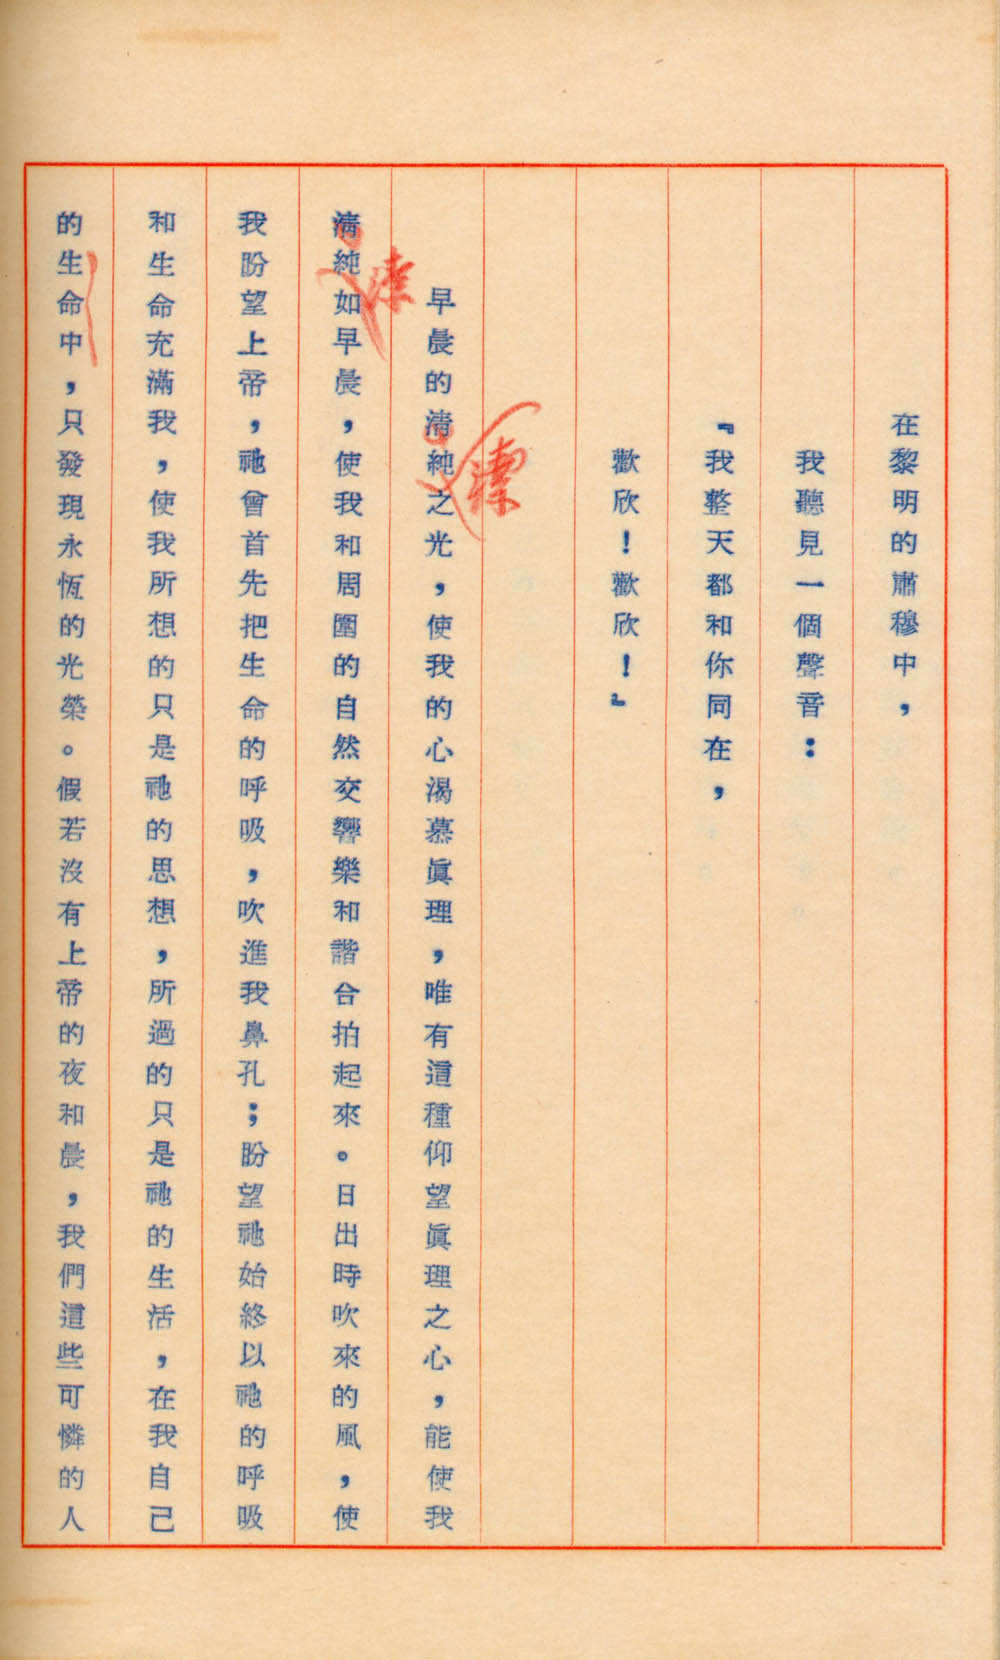 在黎明的肅穆中，
我聽見一個聲音：
『我整天都和你同在，
歡欣！歡欣！』
早晨的清純之光，使我的心渴慕眞理，唯有這種仰望眞理之心，能使我
清純如早晨，使我和周圍的自然交響樂和諧合拍起來。日出時吹來的風，使
我盼望上帝，祂曾首先把生命的呼吸，吹進我鼻孔；盼望祂始終以祂的呼吸
和生命充滿我，使我所想的只是祂的思想，所過的只是祂的生活，在我自己
的生命中，只發現永恆的光榮。假若沒有上帝的夜和晨，我們這些可憐的人